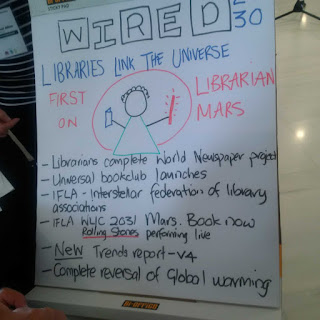 WIRED 2030
LIBRARIES LINK THE UNIVERSE
FIRST LIBRARIAN
ON MARS
- Librarians complete World Newspaper project
- Universal bookclub launches
- IFLA - Interstellar federation of library
associations
- IFLA WLIC 2031 Mars. Book now
Rolling Stones performing live
- New Trends report - V4
- Complete reversal of Global warming